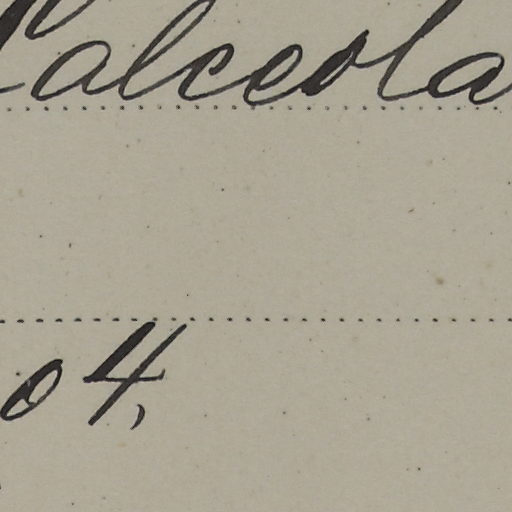 Calceola
04,